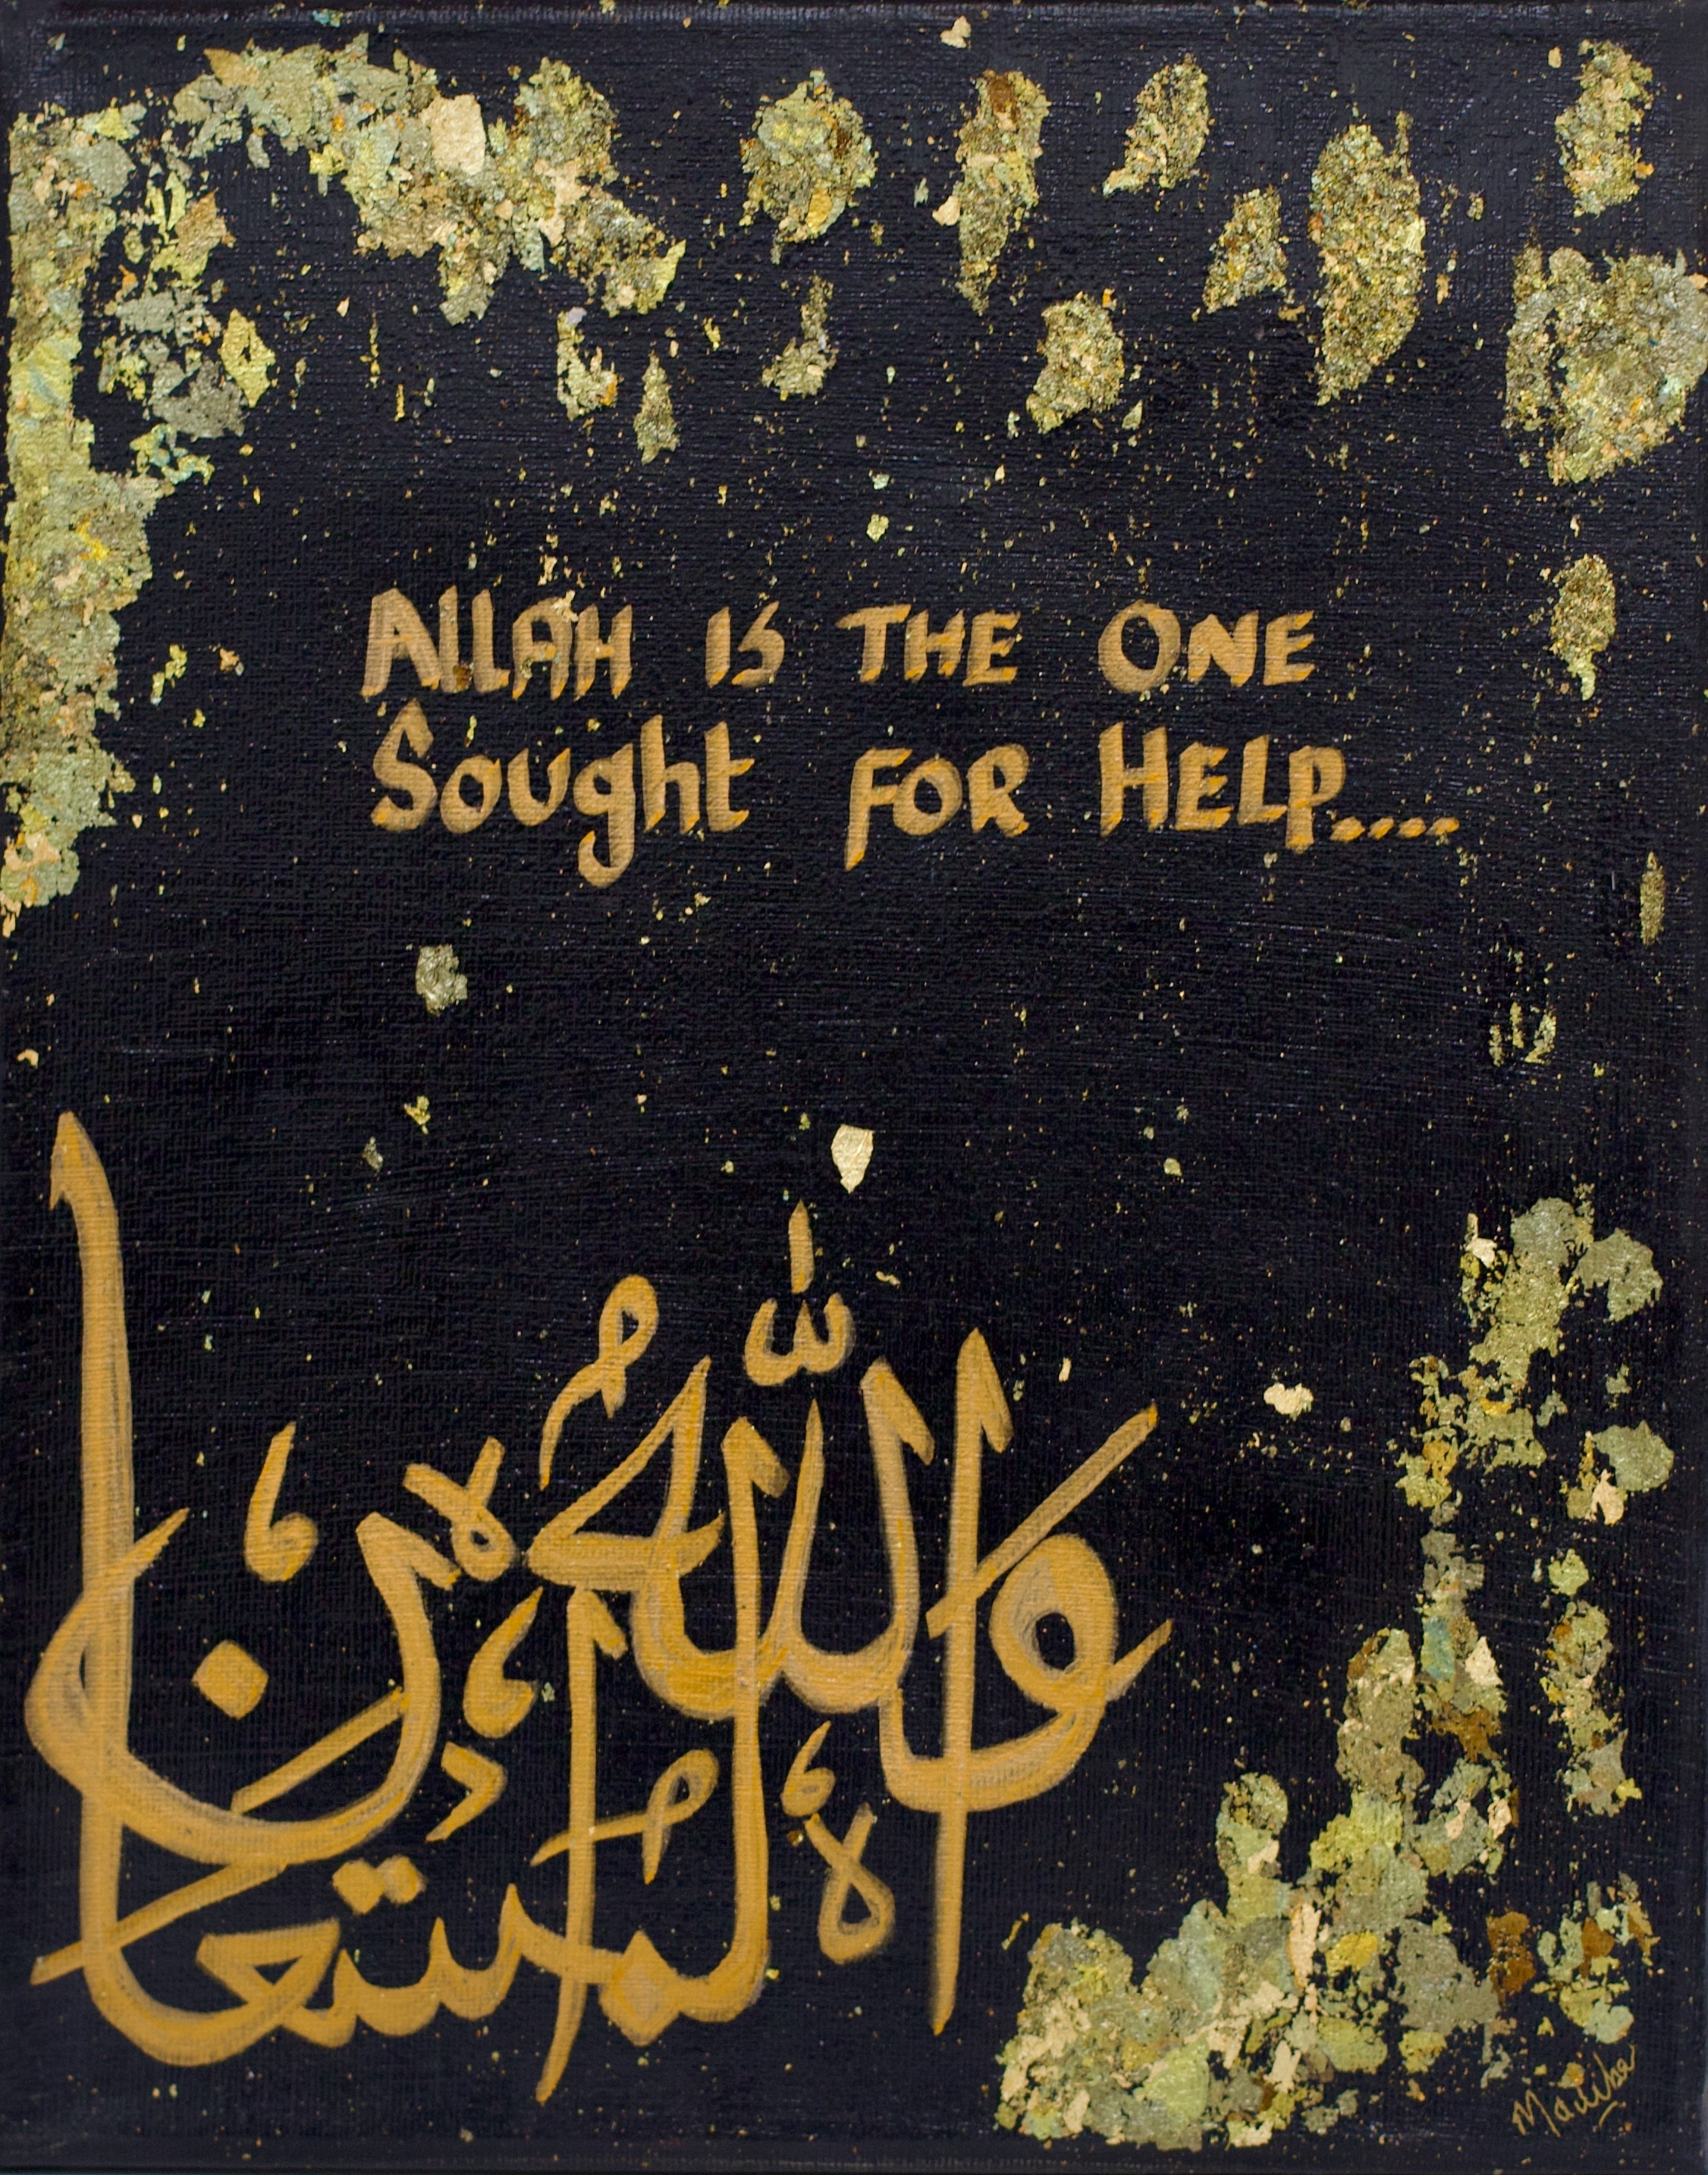 ALLAH IS THE ONE
Sought FOR HELP....
وَاللّٰهُ الْمُسْتَعَانُ
Madiha